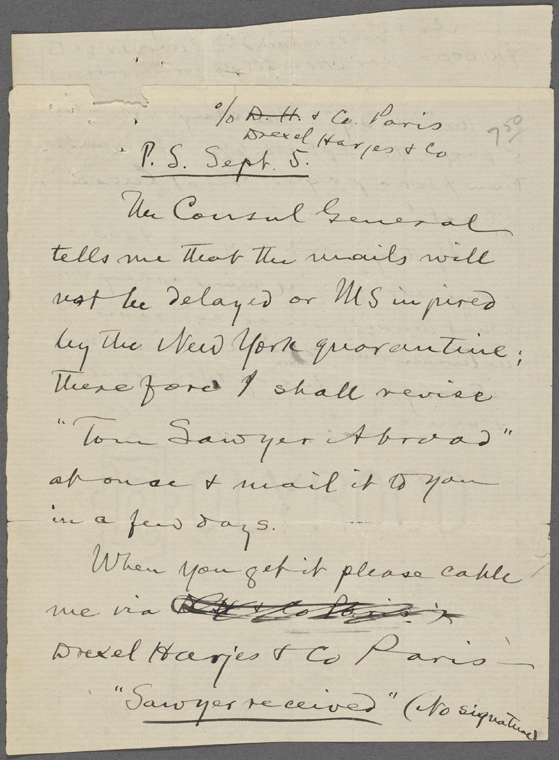 c/o D. H. & Co. Paris
Drexel Harjes & Co
750
P. S. Sept. 5.
The Consul General
tells me that the mails will
not be delayed or MS injured
by the New York quarantine;
therefore I shall revise
"Tom Sawyer Abroad"
at once & mail it to you
in a few days.
When you get it please cable
me via
Drexel Harjes & Co Paris—
"Sawyer received" (No signature)